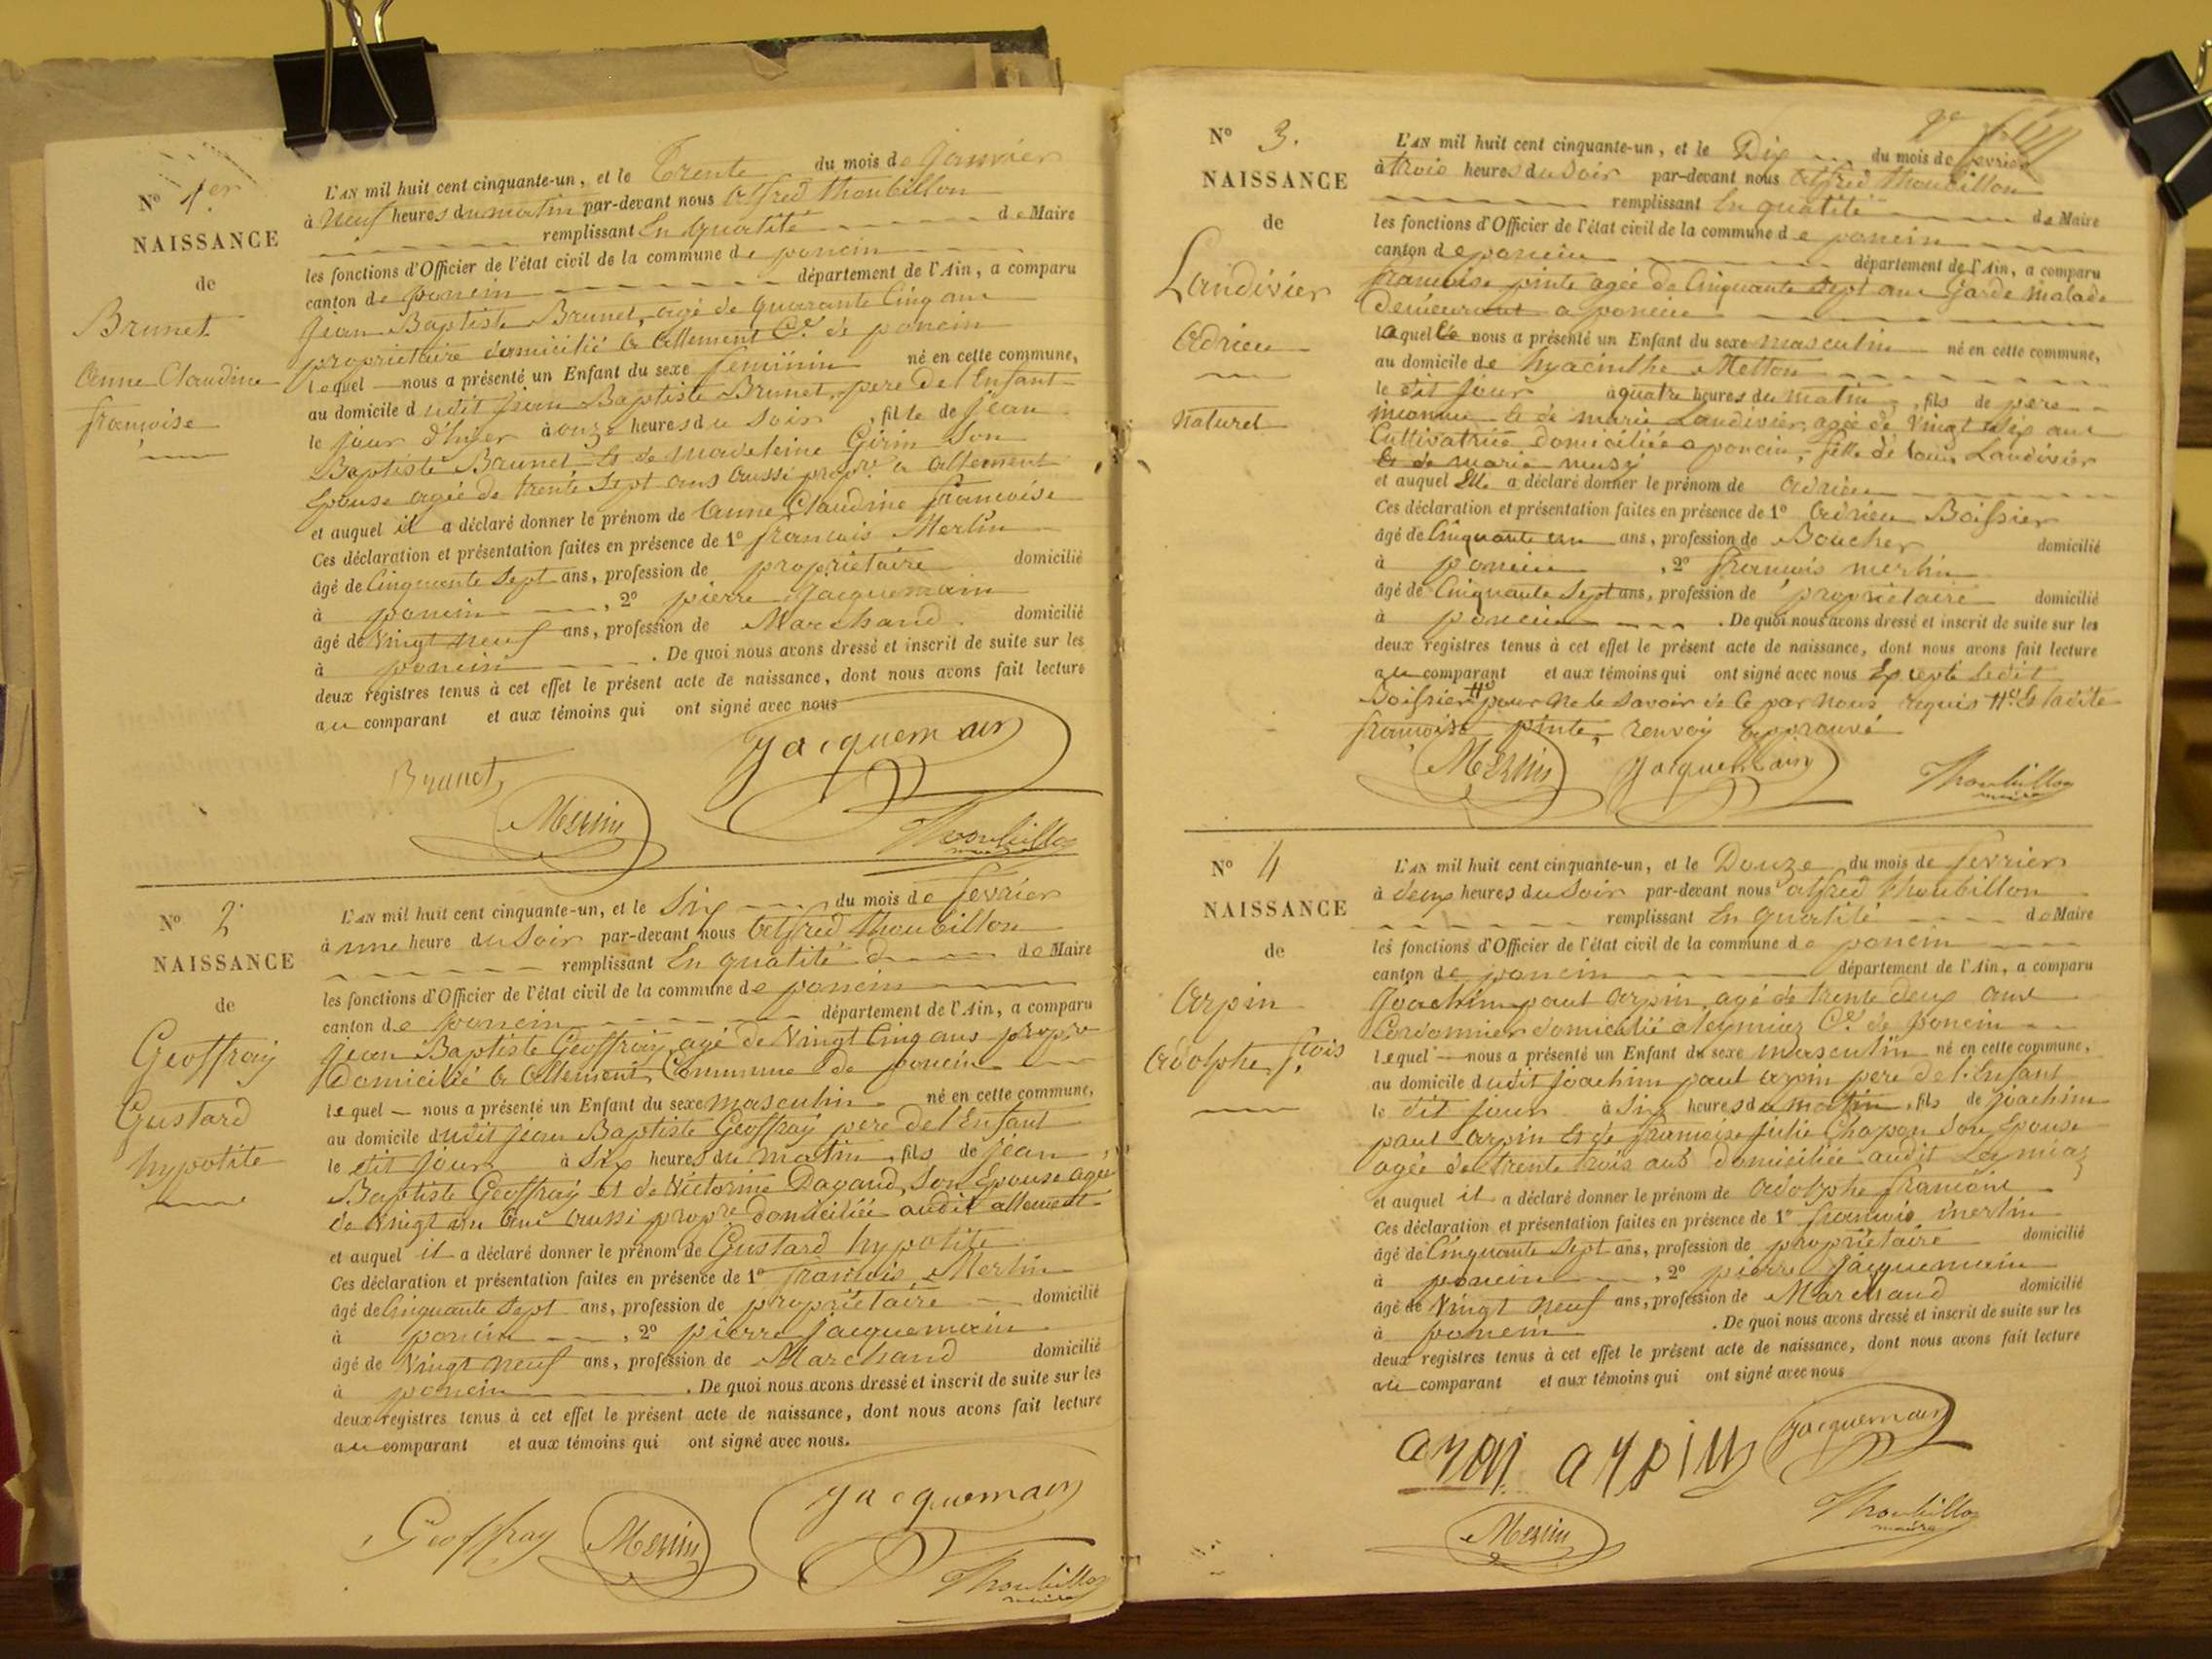 N° 1er
NAISSANCE
de
Brunet
Anne Claudine
françoise
L'AN mil huit cent cinquante-un, et le Trente du mois de Janvier
à Neuf heures du matin par-devant nous alfred thoubillon
remplissant En qualité de Maire
les fonctions d'Officier de l'état civil de la commune de poncin
canton de poncin département de l'Ain, a comparu
Jean Baptiste Brunet, agé de quarante Cinq ans
propriétaire domicilié a allement Cne de poncin
lequel nous a présenté un Enfant du sexe feminin né en cette commune,
au domicile dudit Jean Baptiste Brunet, pere de l'Enfant
le jour d'hyer à onze heures du soir, fille de jean
Baptiste Brunet Et de madeleine Girin Son
Epouse agée de trente Sept ans aussi propre a allement
et auquel il a déclaré donner le prénom de Anne Claudine francoise
Ces déclaration et présentation faites en présence de 1° francois Merlin
âgé de Cinquante Sept ans, profession de propriétaire domicilié
à poncin, 2° pierre Jacquemain
âgé de Vingt neuf ans, profession de Marchand domicilié
à poncin. De quoi nous avons dressé et inscrit de suite sur les
deux registres tenus à cet effet le présent acte de naissance, dont nous avons fait lecture
au comparant et aux témoins qui ont signé avec nous
Brunet
Jacquemain
Merlin
Thoubillon
maire
N° 2
NAISSANCE
de
Geoffray
Gustard
hypolite
L'AN mil huit cent cinquante-un, et le Six du mois de fevrier
à une heure du Soir par-devant nous alfred thoubillon
remplissant En qualité d de Maire
les fonctions d'Officier de l'état civil de la commune de poncin
canton de poncin département de l'Ain, a comparu
Jean Baptiste Geoffray, agé de Vingt Cinq ans propre
Domicilié a allement, Commune de poncin
lequel nous a présenté un Enfant du sexe masculin né en cette commune,
au domicile dudit Jean Baptiste Geoffray pere de l'Enfant
le dit Jour à Six heures du matin, fils de jean
Baptiste Geoffray et de Victorine Dagaud, Son Epouse agée
de Vingt un ans aussi propre domiciliée audit allement
et auquel il a déclaré donner le prénom de Gustard hypolite
Ces déclaration et présentation faites en présence de 1° francois Merlin
âgé de Cinquante Sept ans, profession de propriétaire domicilié
à poncin, 2° pierre Jacquemain
âgé de Vingt neuf ans, profession de Marchand domicilié
à poncin. De quoi nous avons dressé et inscrit de suite sur les
deux registres tenus à cet effet le présent acte de naissance, dont nous avons fait lecture
au comparant et aux témoins qui ont signé avec nous.
Geoffray
Merlin
Jacquemain
Thoubillon
maire
N° 3.
NAISSANCE
de
Landivier
Adrien
Naturel
L'AN mil huit cent cinquante-un, et le Dix du mois de fevrier
à trois heures du Soir par-devant nous alfred thoubillon
remplissant En qualité de Maire
les fonctions d'Officier de l'état civil de la commune de poncin
canton de poncin département de l'Ain, a comparu
francoise pinte agée de Cinquante Sept ans Garde malade
demeurant a poncin
laquelle nous a présenté un Enfant du sexe masculin né en cette commune,
au domicile de hyacinthe Metton
le dit Jour à quatre heures du matin, fils de pere
inconnu Et de marie Landivier, agée de Vingt dix ans
Cultivatrice domiciliée a poncin, fille de louis Landivier
Et de marie musy
et auquel Elle a déclaré donner le prénom de adrien
Ces déclaration et présentation faites en présence de 1° Adrien Boissier
âgé de Cinquante un ans, profession de Boucher domicilié
à poncin, 2° francois merlin
âgé de Cinquante Sept ans, profession de propriétaire domicilié
à poncin. De quoi nous avons dressé et inscrit de suite sur les
deux registres tenus à cet effet le présent acte de naissance, dont nous avons fait lecture
au comparant et aux témoins qui ont signé avec nous Excepté ledit
Boissier pour ne le savoir de ce par nous requis Et ladite
françoise pinte, renvoy approuvé
Merlin
Jacquemain
Thoubillon
maire
N° 4
NAISSANCE
de
Arpin
Adolphe f.cois
L'AN mil huit cent cinquante-un, et le Douze du mois de fevrier
à deux heures du Soir par-devant nous alfred thoubillon
remplissant En qualité de Maire
les fonctions d'Officier de l'état civil de la commune de poncin
canton de poncin département de l'Ain, a comparu
Joachim paul arpin, agé de trente deux ans
Cordonnier domicilié a leymiaz Cne de poncin
lequel nous a présenté un Enfant du sexe masculin né en cette commune,
au domicile dudit joachim paul arpin pere de l'Enfant
le dit jour à Six heures du matin, fils de joachim
paul arpin Et de francoise julie Chapon Son Epouse
agée de trente trois ans domiciliée audit Leymiaz
et auquel il a déclaré donner le prénom de adolphe francois
Ces déclaration et présentation faites en présence de 1° francois merlin
âgé de Cinquante Sept ans, profession de propriétaire domicilié
à poncin, 2° pierre jacquemain
âgé de Vingt neuf ans, profession de Marchand domicilié
à poncin. De quoi nous avons dressé et inscrit de suite sur les
deux registres tenus à cet effet le présent acte de naissance, dont nous avons fait lecture
au comparant et aux témoins qui ont signé avec nous
arpin
Jacquemain
Merlin
Thoubillon
maire